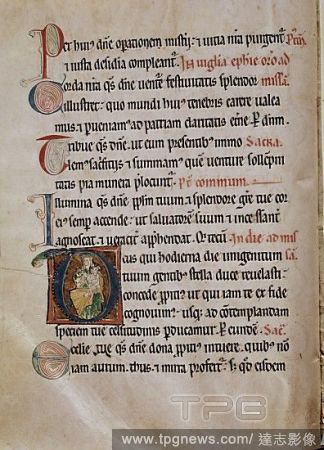 Per huiꝰ dn̄e oꝑationem misterii: ⁊ uitia nr̄a purgent̄. P. cōm
⁊ iusta desidia compleant̄. In uigilia epħie oꝛo ad
Corda nr̄a qs̄ dn̄e uentē festiuitatis splendor missā.
illustret: quo mundi huiꝰ tenebris carere ualea
mus. ⁊ ꝑueniam ad patriam claritatis et̄ne. P dn̄m.
Tribue qs̄ dn̄e. ut eum presentibꝰ immo Sacra.
lem sac̄ficiis ⁊ summamꝰ. quem uenture sollēpni
tatis pia munera
Illumina qs̄ dn̄e ppl̄m tuum. ⁊ splendore gr̄e tue cor
eiꝰ semp accende: ut saluatorē suum ⁊ incessant̄
agnoscat. ⁊ ueracit̄ app̄hendat. In die ad mis
Deus qui hodierna die unigenitum sā.
tuum gentibꝰ stella duce reuelasti:
concede ut qui iam te ex fide
cognouimꝰ: usqꝫ ad contemplandam
speciem tue celsitudinis ꝑducamur. P eundē. Sac̄.
Ecclīe tue qs̄ dn̄e dona intuere. quibꝰ nō
iam aurum. thus. ⁊ mirra ꝓfert̄: s; qd̄ eisdem
TPG
www.tpgnews.com / 達志影像